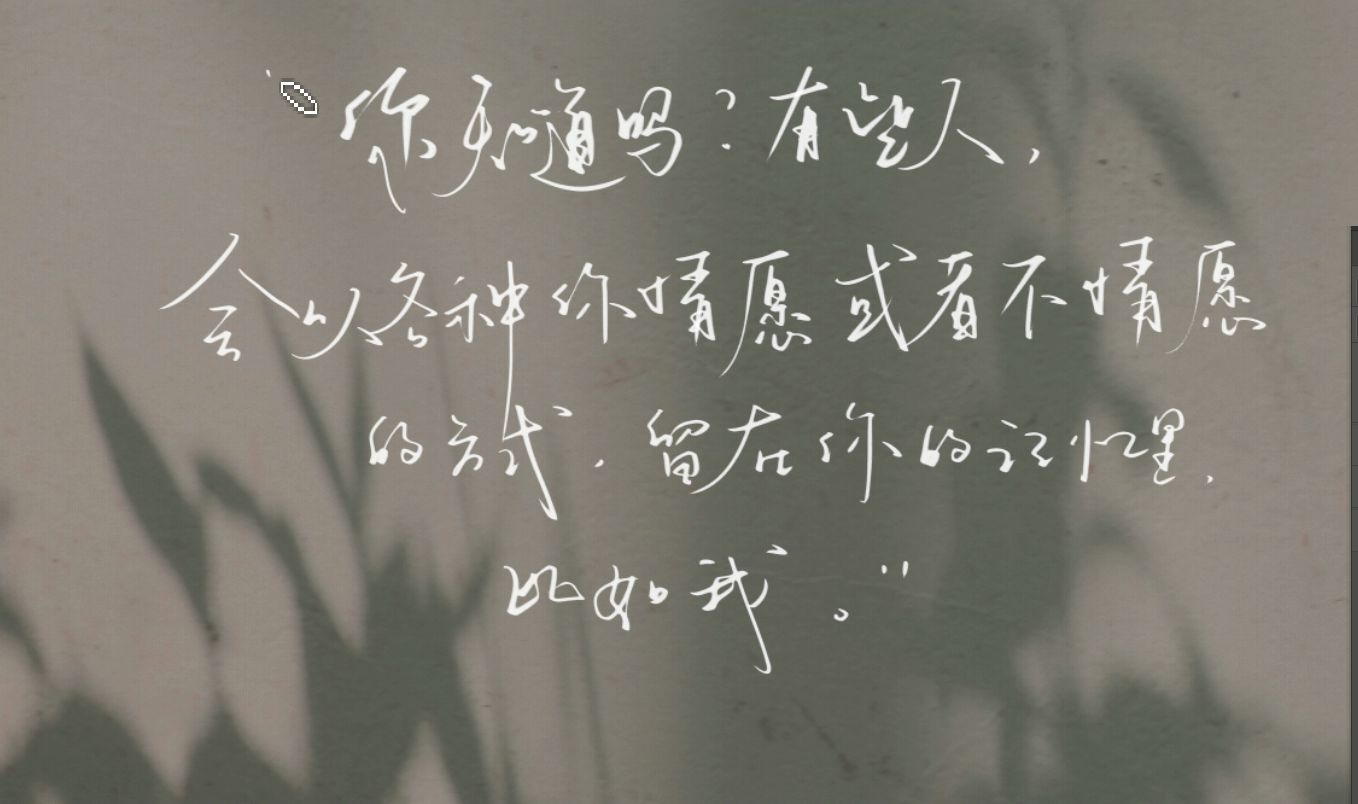 “你知道吗？有些人，
会以各种你情愿或者不情愿
的方式，留在你的记忆里，
比如我。”